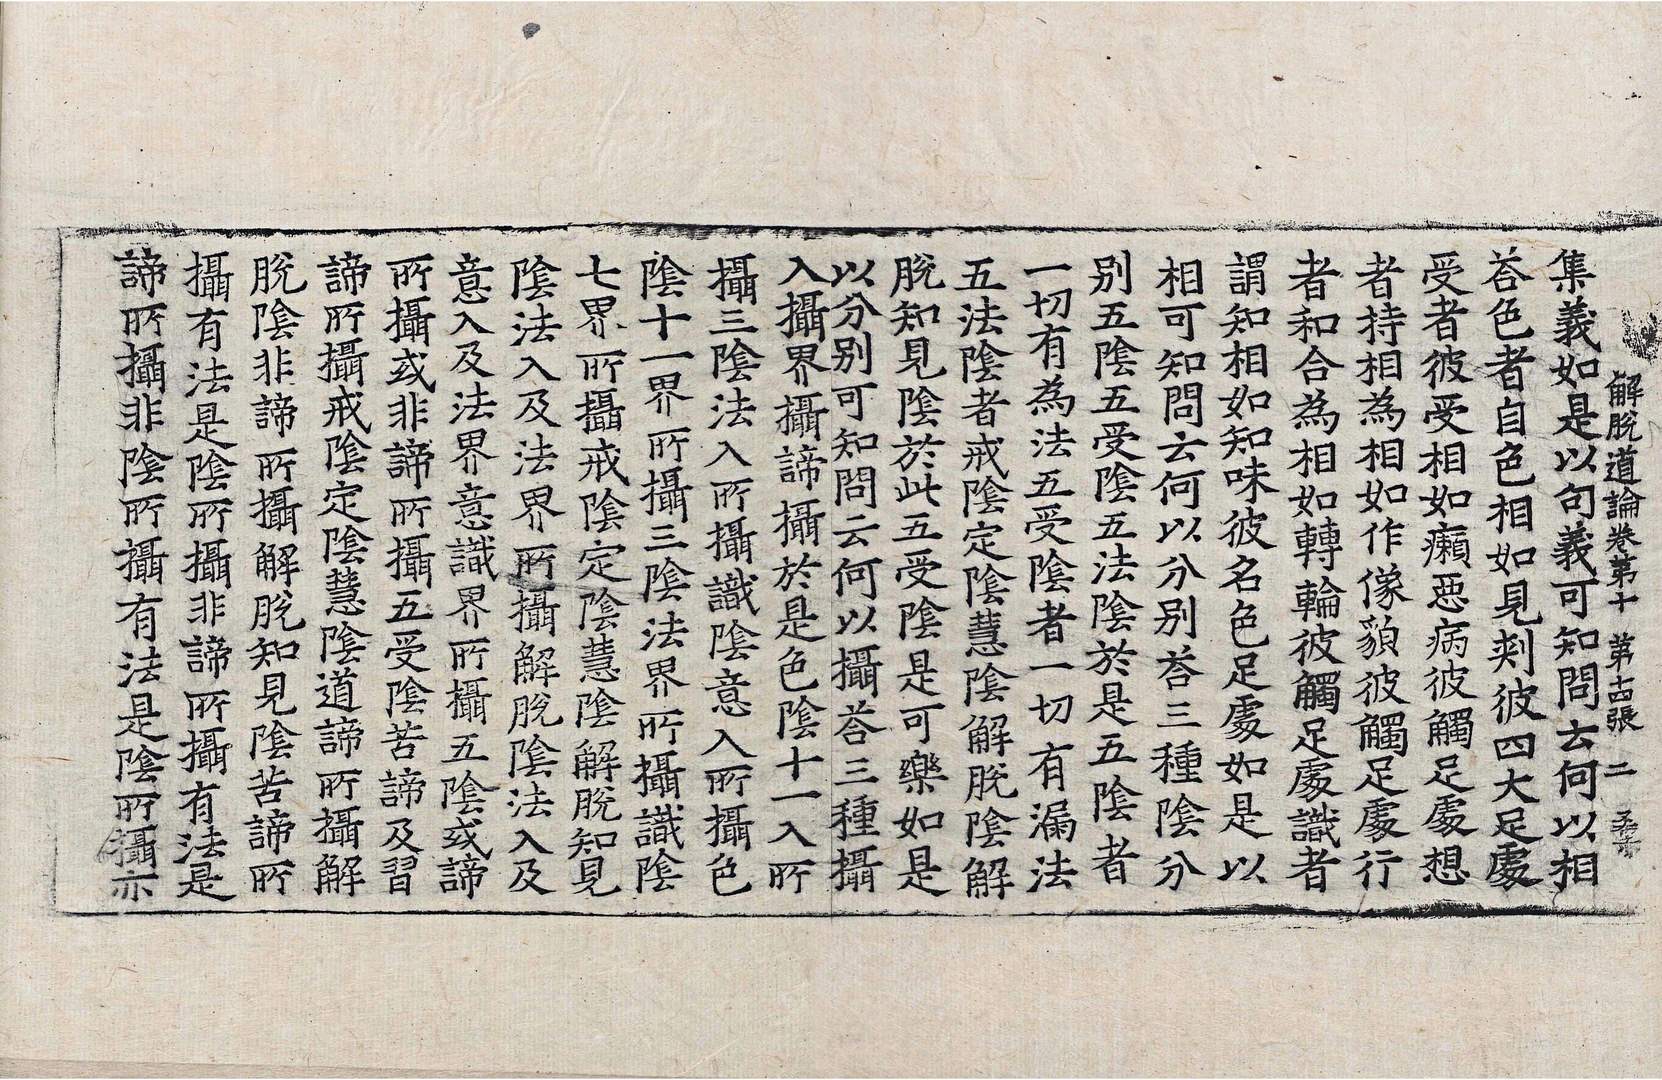 解脫道論卷第十　第十四張　二
集義如是以句義可知問云何以相
荅色者自色相如見刾彼四大足處
受者彼受相如癩惡病彼觸足處想
者持相為相如作像貌彼觸足處行
者和合為相如轉輪彼觸足處識者
謂知相如知味彼名色足處如是以
相可知問云何以分别荅三種陰分
别五陰五受陰五法陰於是五陰者
一切有為法五受陰者一切有漏法
五法陰者戒陰定陰慧陰解脫陰解
脫知見陰於此五受陰是可樂如是
以分别可知問云何以攝荅三種攝
入攝界攝諦攝於是色陰十一入所
攝三陰法入所攝識陰意入所攝色
陰十一界所攝三陰法界所攝識陰
七界所攝戒陰定陰慧陰解脫知見
陰法入及法界所攝解脫陰法入及
意入及法界意識界所攝五陰或諦
所攝或非諦所攝五受陰苦諦及習
諦所攝戒陰定陰慧陰道諦所攝解
脫陰非諦所攝解脫知見陰苦諦所
攝有法是陰所攝非諦所攝有法是
諦所攝非陰所攝有法是陰所攝亦